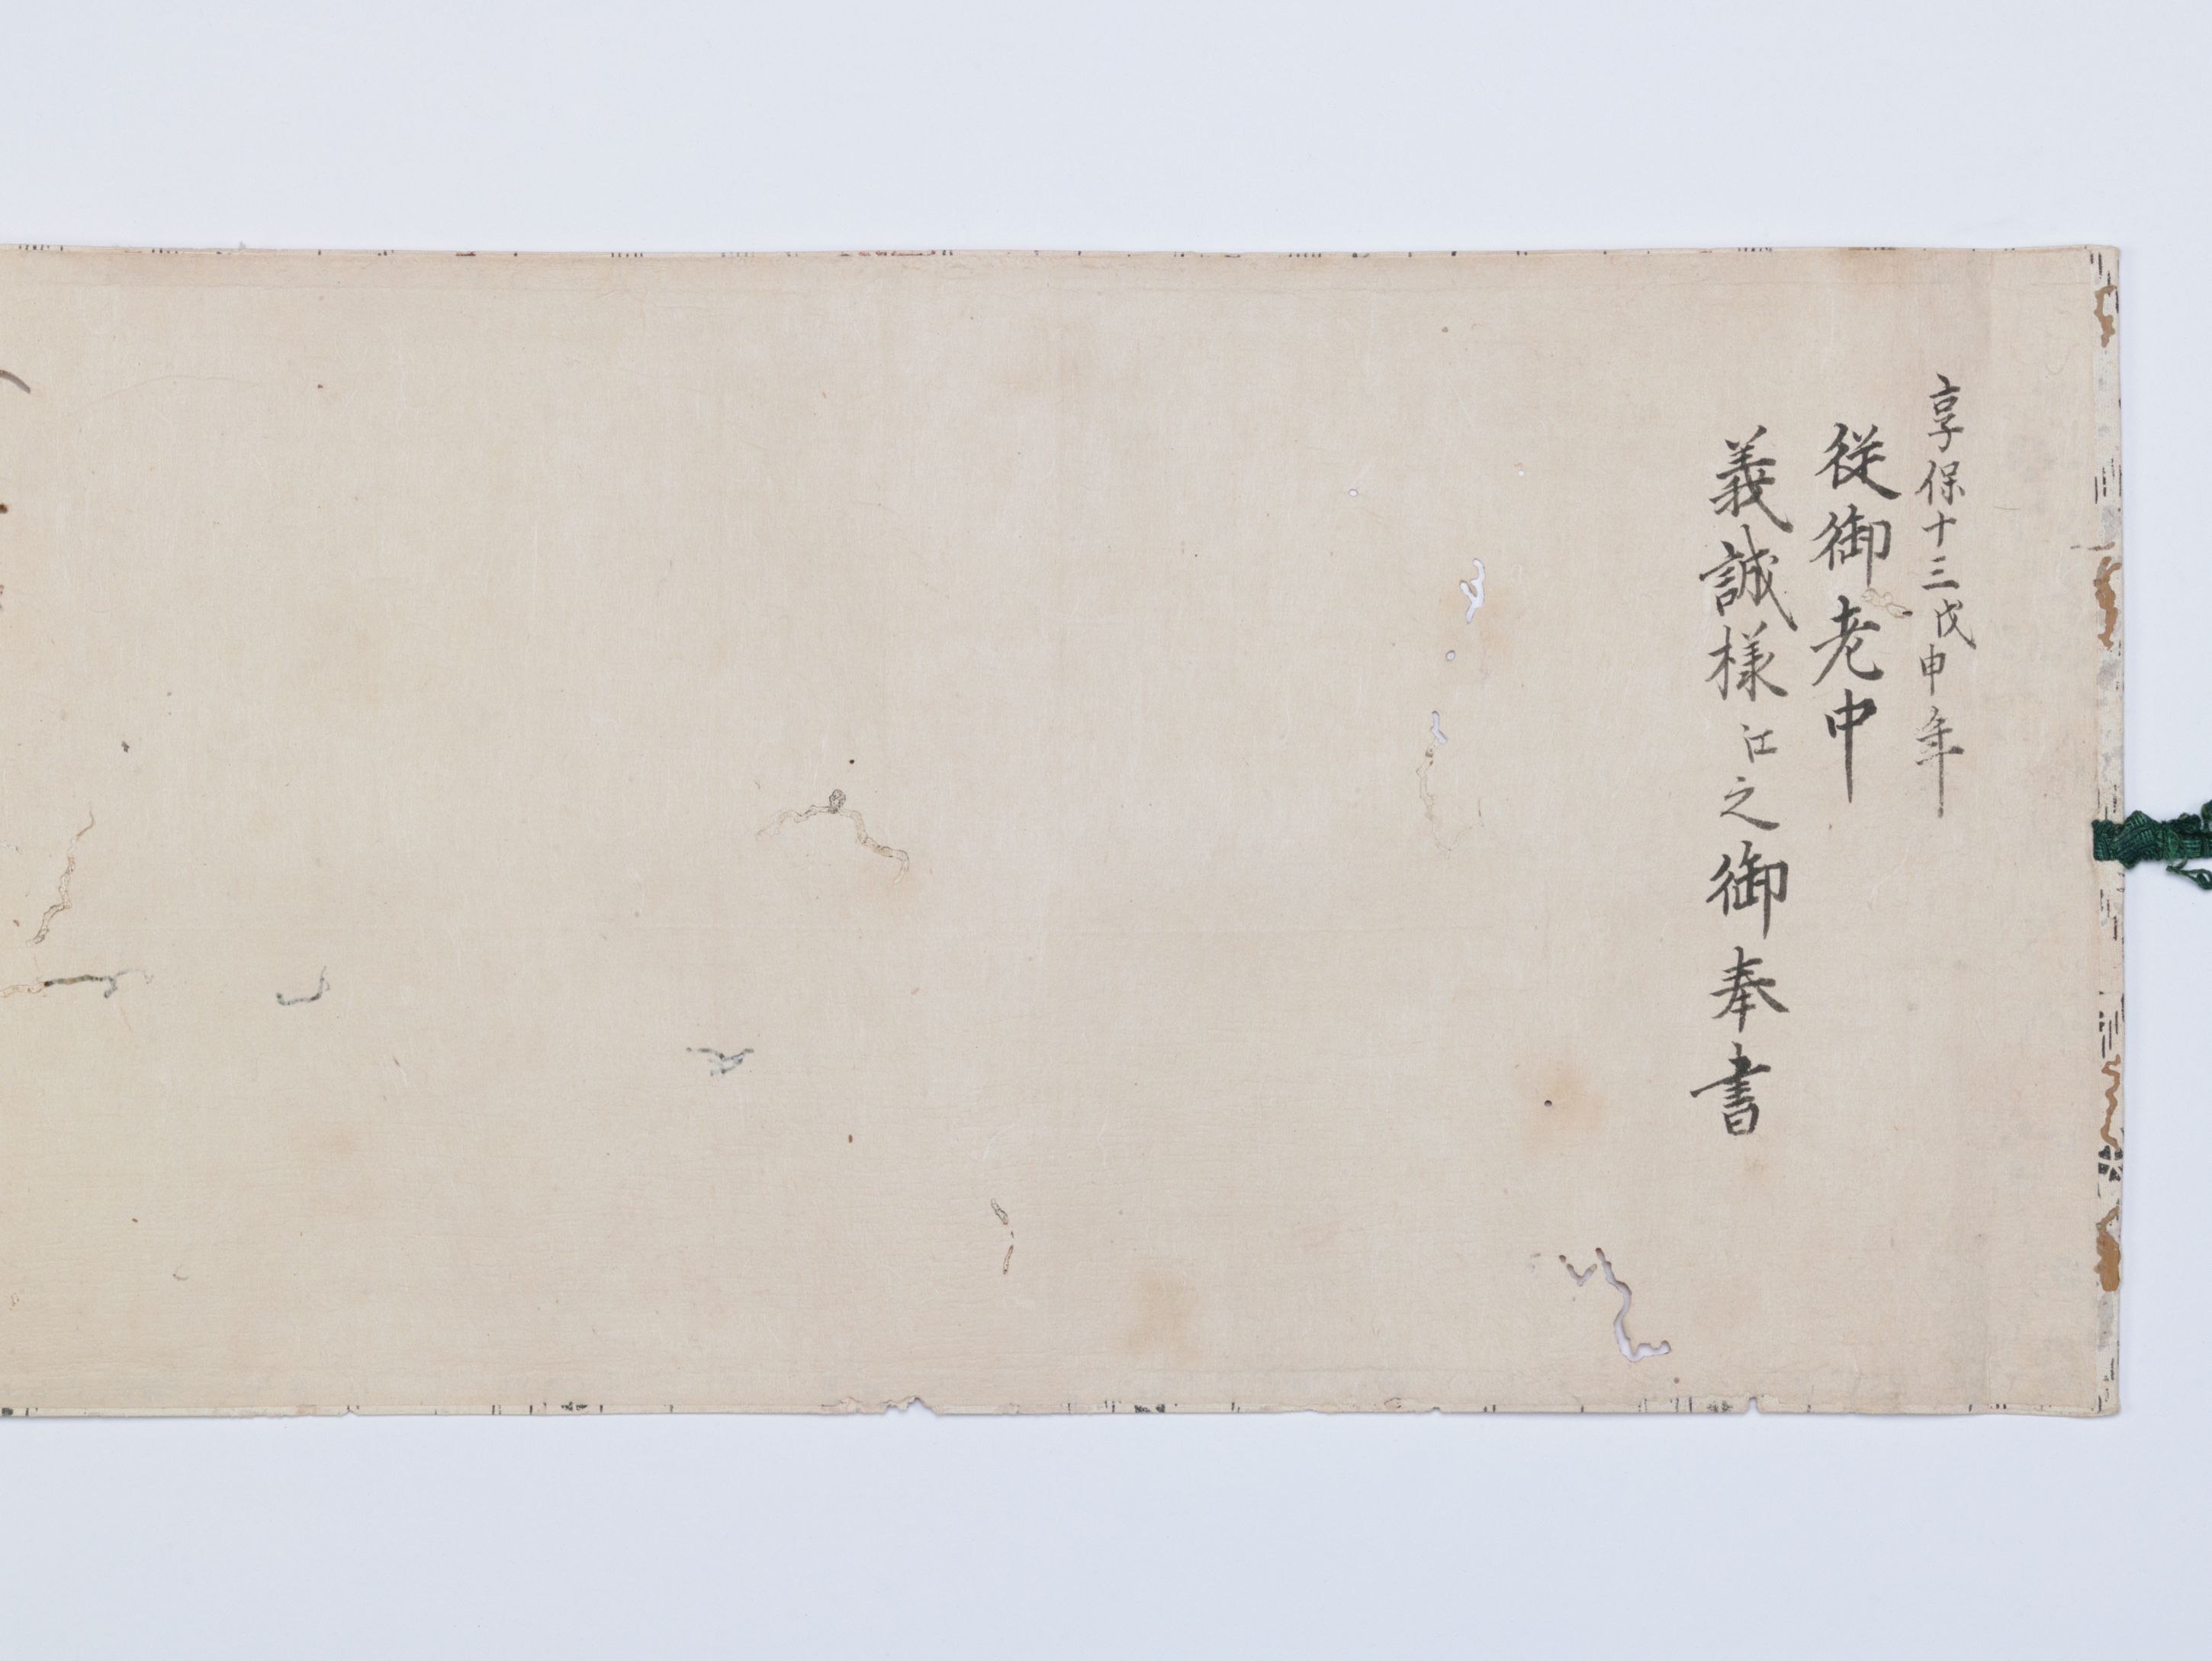 享保十三戊申年
従御老中
義誠様江之御奉書